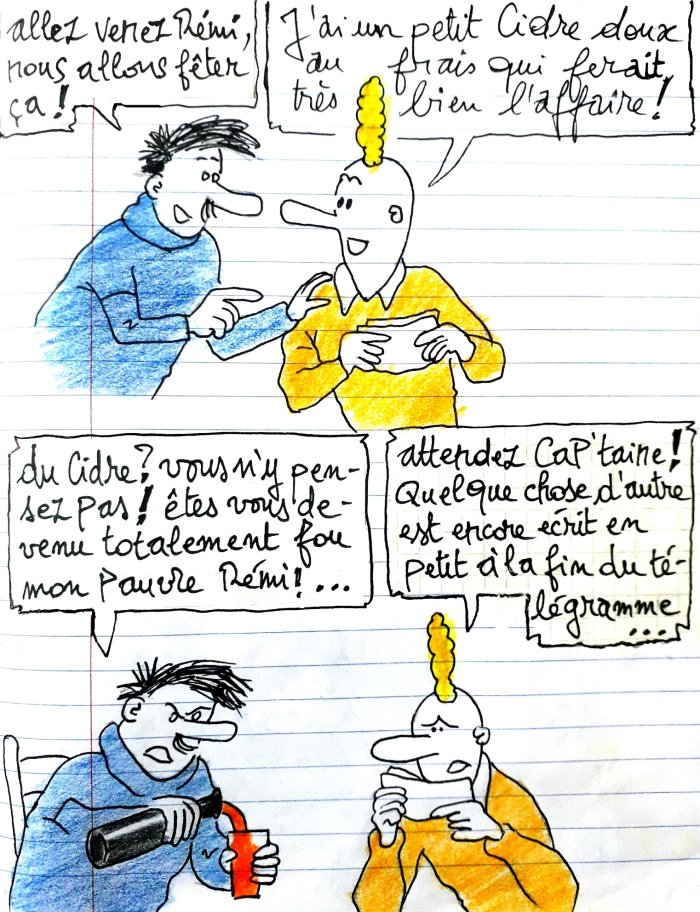 allez venez Rémi,
nous allons fêter
ça!
J'ai un petit Cidre doux
au frais qui ferait
très bien l'affaire!
du Cidre? vous n'y pen-
sez pas! êtes vous de-
venu totalement fou
mon pauvre Rémi!...
attendez Cap'taine!
Quelque chose d'autre
est encore écrit en
petit à la fin du té-
légramme
...